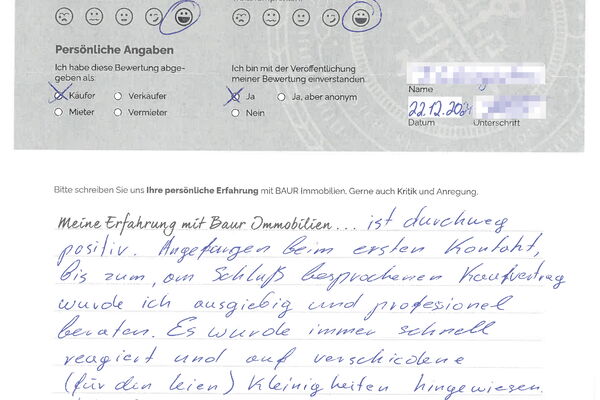 Persönliche Angaben
Ich habe diese Bewertung abge-
geben als:
Käufer
Verkäufer
Mieter
Vermieter
Ich bin mit der Veröffentlichung
meiner Bewertung einverstanden
Ja
Ja, aber anonym
Nein
Name
22.12.2021
Datum
Unterschrift
Bitte schreiben Sie uns Ihre persönliche Erfahrung mit BAUR Immobilien. Gerne auch Kritik und Anregung.
Meine Erfahrung mit Baur Immobilien... ist durchweg
positiv. Angefangen beim ersten Kontakt,
bis zum, am Schluß besprochenen Kaufvertrag
wurde ich ausgiebig und profesionel
beraten. Es wurde immer schnell
reagiert und auf verschiedene
(für den leien) Kleinigkeiten hingewiesen.